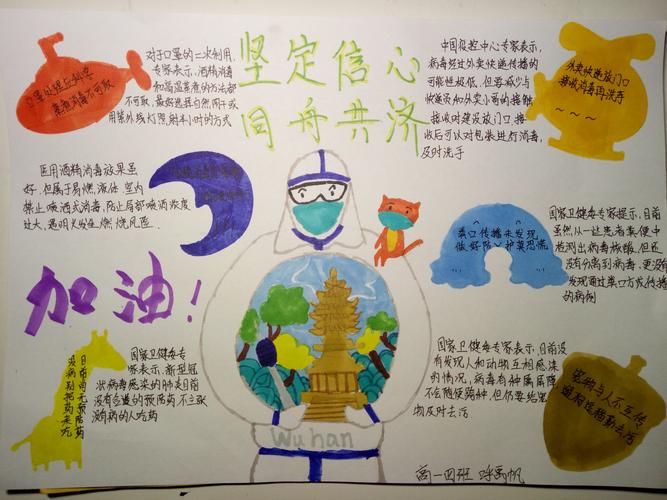 坚定信心
同舟共济
口罩处理应科学
蒸煮消毒不可取
对于口罩的二次利用,
专家表示,酒精消毒
和高温蒸煮的方法都
不可取,最好选择自然风干或
用紫外线灯照射半小时的方式
中国疾控中心专家表示,
病毒经过外卖快递传播的
可能性极低,但要减少与
快递员和外卖小哥的接触,
接收时建议放门口,接
收后可以对包装进行消毒,
及时洗手
外卖快递放门口
接收消毒再洗手
医用酒精消毒效果虽
好,但属于易燃液体,室内
禁止喷洒式消毒,防止局部喷洒浓度
过大,遇明火发生燃烧风险.
加油!
粪口传播未发现
做好防护莫恐慌
国家卫健委专家提示,目前
虽然从一些患者粪便中
检测出病毒核酸,但还
没有分离到病毒,更没有
发现通过粪口方式传播
的病例
目前尚无预防药
没病别把药来吃
国家卫健委专
家表示,新型冠
状病毒感染的肺炎目前
没有合适的预防药,不主张
没病的人吃药
国家卫健委专家表示,目前没
有发现人和动物互相感染
的情况,病毒有种属屏障,
不会随便跨种,但仍要给宠
物及时去污
宠物与人不互传
Wuhan
高一四班